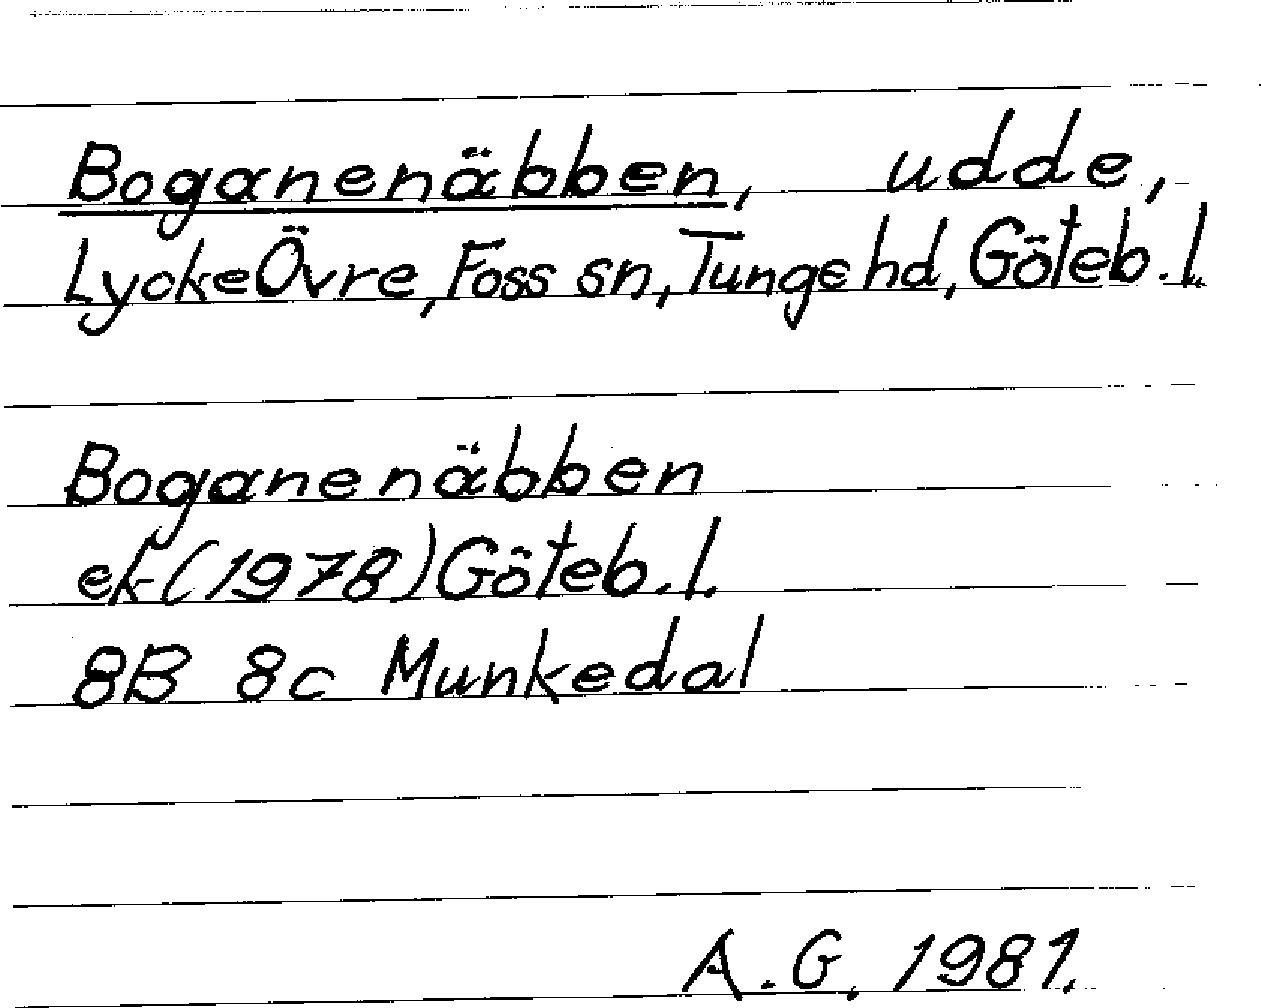 Boganenäbben, udde,
Lycke Övre, Foss sn, Tunge hd, Göteb. l.
Boganenäbben
ek (1978) Göteb. l.
8B 8c Munkedal
A. G. 1981.